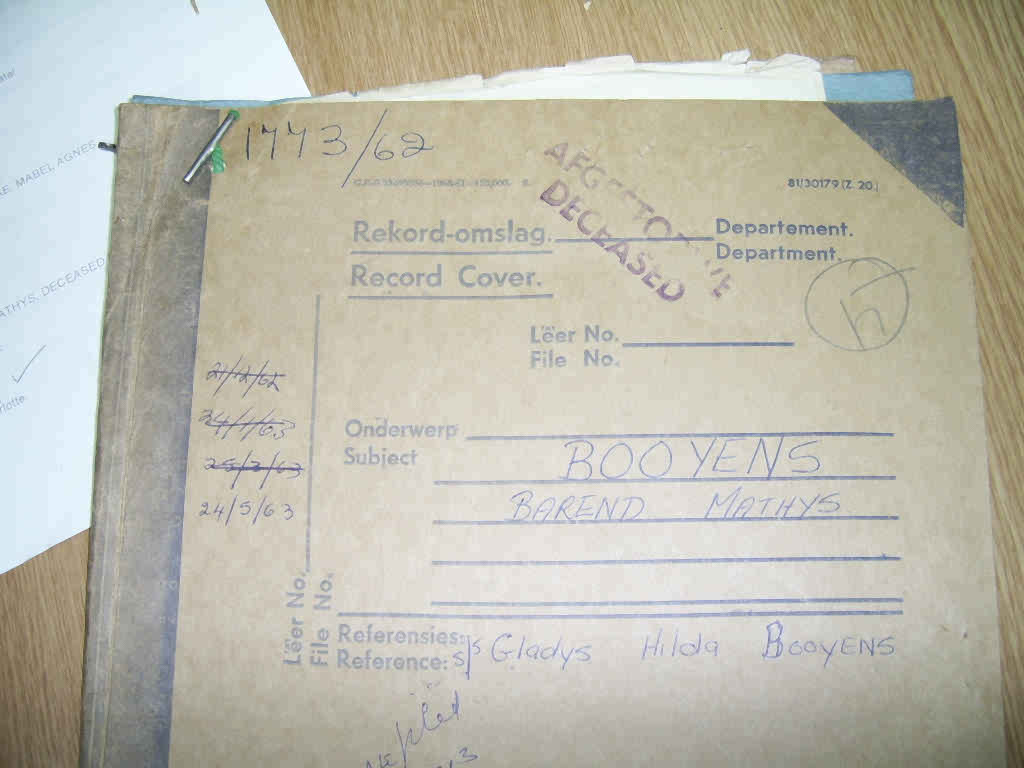 MABEL AGNES
MATHYS, DECEASED
1773/62
81/30179 (Z. 20.)
AFGESTORWE
DECEASED
Rekord-omslag. Departement.
Record Cover. Department.
Lêer No.
File No.
21/12/62
24/1/63
25/3/63
24/5/63
Onderwerp
Subject BOOYENS
BAREND MATHYS
Lêer No.
File No.
Referensies:
Reference: s/s Gladys Hilda BOOYENS